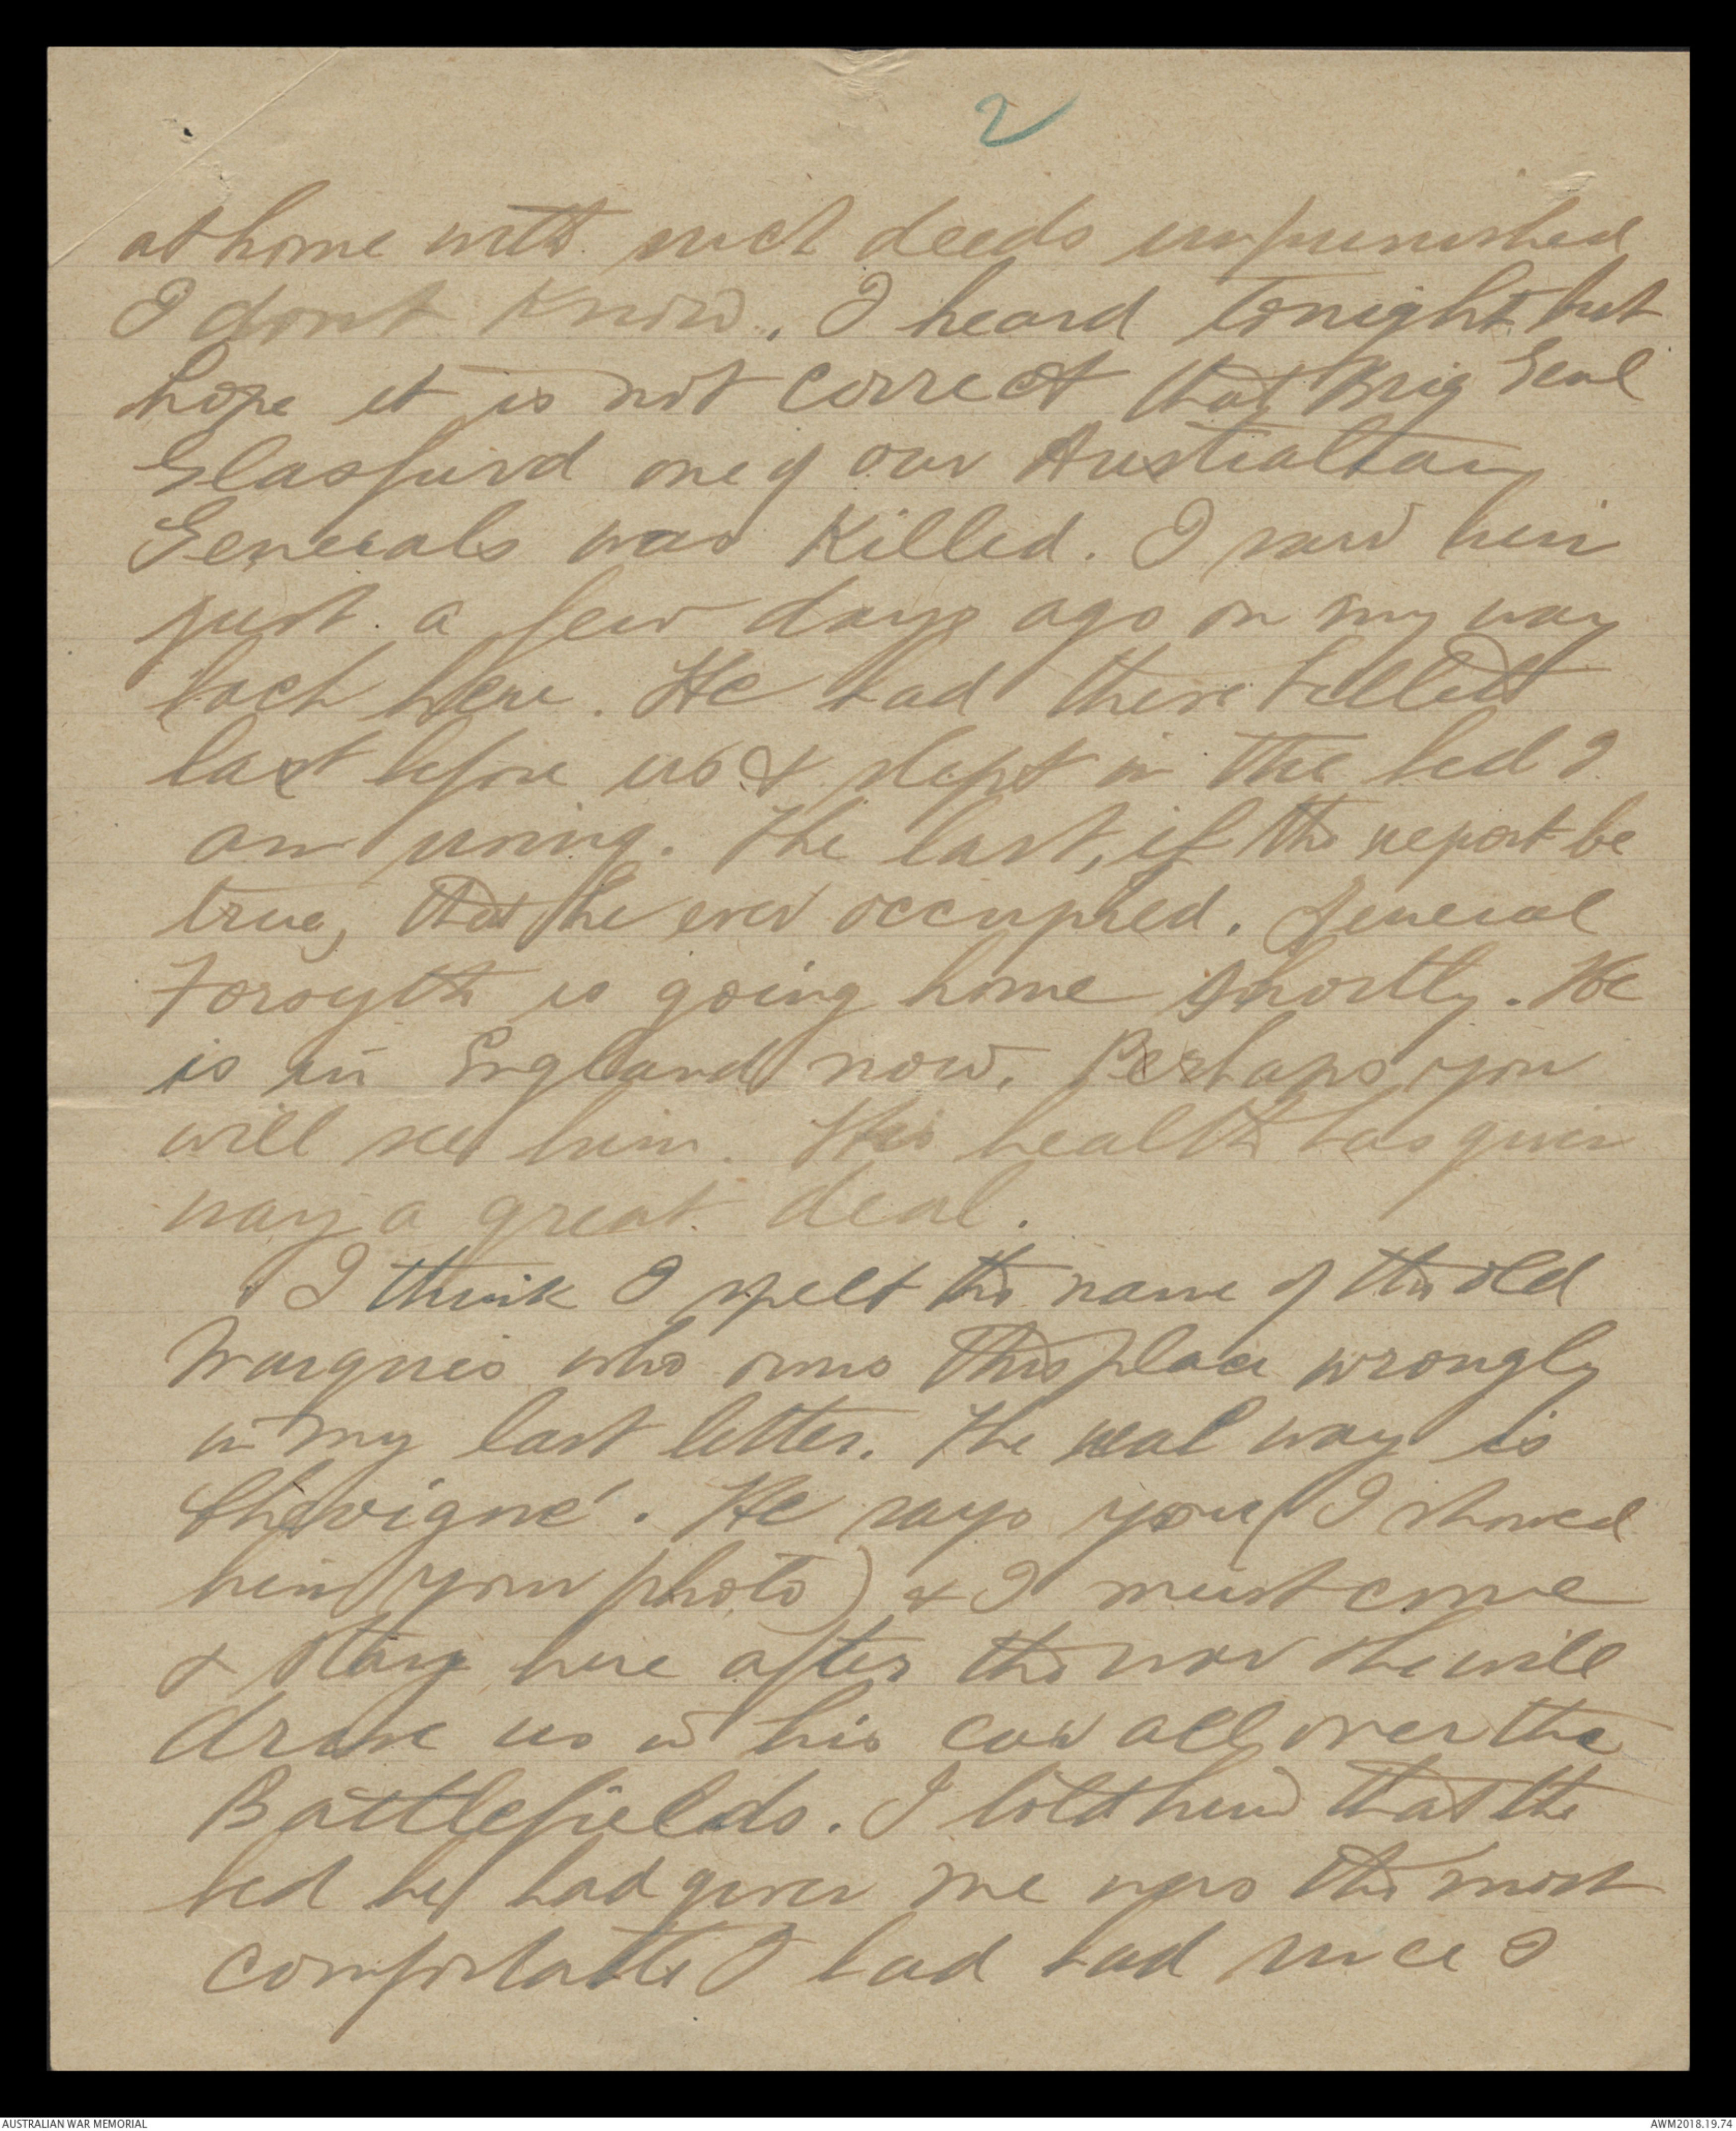 2
at home with such deeds unpunished
I dont know. I heard tonight but
hope it is not correct that Brig Genl
Glasfurd one of our Australian
Generals was killed. I saw him
just a few days ago on my way
back here. He had these billets
last before us & slept in the bed I
am using. The last, if the report be
true, that he ever occupied. General
Forsyth is going home shortly. He
is in England now. Perhaps you
will see him. His health has given
way a great deal.
I think I spelt the name of the old
Marquis who owns this place wrongly
in my last letter. The real way is
Chevigné. He says you (I showed
him your photo) & I must come
& stay here after the war & he will
drive us in his car all over the
Battlefields. I told him that the
bed he had given me was the most
comfortable I had had since I
AUSTRALIAN WAR MEMORIAL
AWM2018.19.74